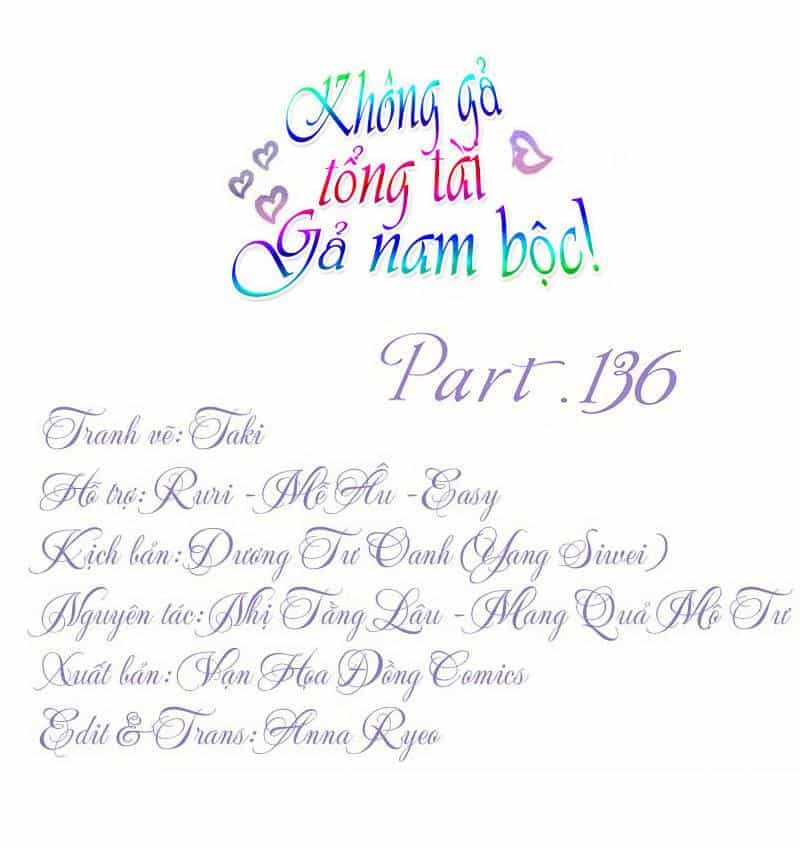 Không gả
tổng tài
Gả nam bộc!
Part .136
Tranh vẽ: Taki
Hỗ trợ: Ruri - Mề Âu - Easy
Kịch bản: Dương Tư Oanh (Yang Siwei)
Nguyên tác: Nhị Tằng Lâu - Mang Quả Mô Tư
Xuất bản: Vạn Họa Đồng Comics
Edit & Trans: Anna Ryeo